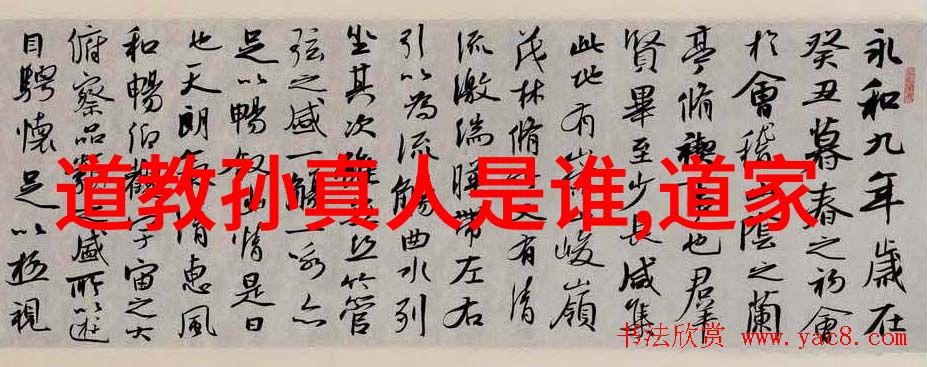 永和九年歲在
癸丑暮春之初會
於會稽山陰之蘭
亭脩禊事也群
賢畢至少長咸集
此地有峻嶺
茂林脩又有清
流激湍暎帶左右
引以為流觴曲水列
坐其次雖無絲竹管
弦之盛一觴一詠亦
足以暢敘幽情是日
也天朗氣清惠風
和暢仰觀宇宙之大
俯察品類之盛所以遊
目騁懷足以極視
道教孙真人是谁,道家
书法欣赏 www.yac8.com